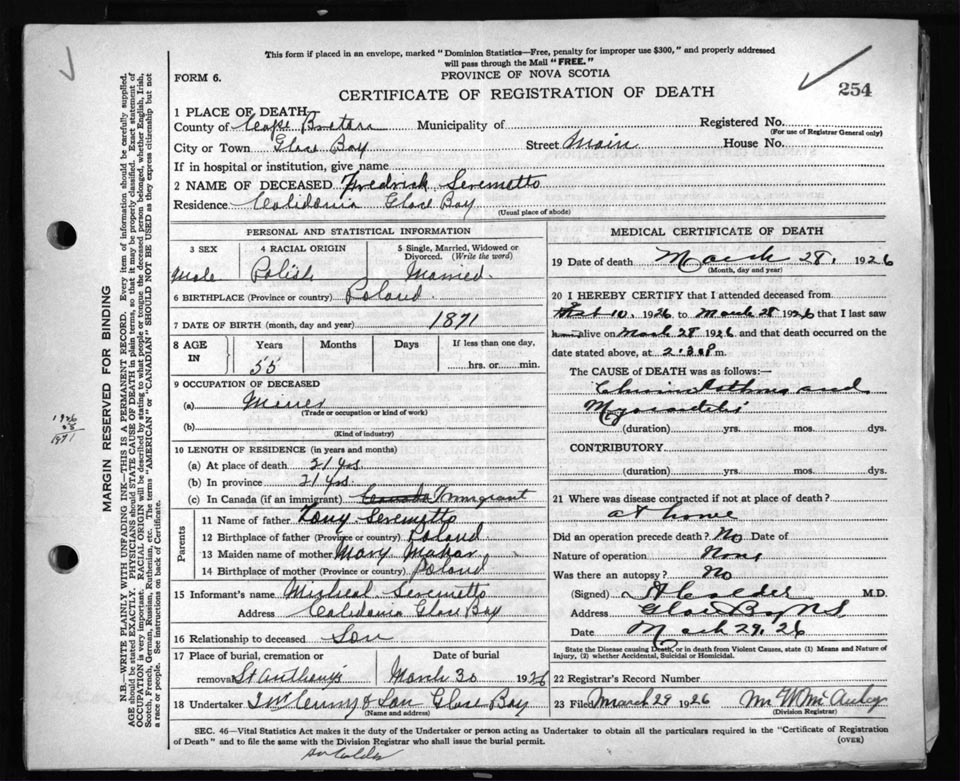 This form if placed in an envelope, marked "Dominion Statistics—Free, penalty for improper use $300," and properly addressed
will pass through the Mail "FREE."
FORM 6.
PROVINCE OF NOVA SCOTIA
254
CERTIFICATE OF REGISTRATION OF DEATH
1 PLACE OF DEATH
County of Cape Breton Municipality of Registered No.
(For use of Registrar General only)
City or Town Glace Bay Street Main House No.
If in hospital or institution, give name
2 NAME OF DECEASED Fredrick Seremetto
Residence Calidonia Glace Bay
(Usual place of abode)
PERSONAL AND STATISTICAL INFORMATION
3 SEX 4 RACIAL ORIGIN 5 Single, Married, Widowed or Divorced. (Write the word)
Male Polish Married
6 BIRTHPLACE (Province or country) Poland
7 DATE OF BIRTH (month, day and year) 1871
8 AGE IN Years Months Days If less than one day,
55 hrs. or min.
9 OCCUPATION OF DECEASED
(a) Miner
(Trade or occupation or kind of work)
(b)
(Kind of industry)
10 LENGTH OF RESIDENCE (in years and months)
(a) At place of death 21 yrs.
(b) In province 21 yrs.
(c) In Canada (if an immigrant) Canada Immigrant
Parents
11 Name of father Tony Seremetto
12 Birthplace of father (Province or country) Poland
13 Maiden name of mother Mary Makar
14 Birthplace of mother (Province or country) Poland
15 Informant's name Micheal Seremetto
Address Calidonia Glace Bay
16 Relationship to deceased Son
17 Place of burial, cremation or removal Date of burial
St Anthony's March 30 1926
18 Undertaker & Son Glace Bay
(Name and address)
MEDICAL CERTIFICATE OF DEATH
19 Date of death March 28, 1926
(Month, day and year)
20 I HEREBY CERTIFY that I attended deceased from
10, 1926 to March 28 1926 that I last saw
alive on March 28 1926 and that death occurred on
date stated above, at 2.30 P m.
The CAUSE of DEATH was as follows:—
Chronic Asthma and
Myocarditis
(duration) yrs. mos. dys.
CONTRIBUTORY.
(duration) yrs. mos. dys.
21 Where was disease contracted if not at place of death?
at home
Did an operation precede death? No Date of
Nature of operation None
Was there an autopsy? No
(Signed) Calder M.D.
Address Glace Bay NS
Date March 29, 26
State the Disease causing Death, or in death from Violent Causes, state (1) Means and Nature of
Injury, (2) whether Accidental, Suicidal or Homicidal.
22 Registrar's Record Number
23 Filed March 29 1926
(Division Registrar)
SEC. 46—Vital Statistics Act makes it the duty of the Undertaker or person acting as Undertaker to obtain all the particulars required in the "Certificate of Registration
of Death" and to file the same with the Division Registrar who shall issue the burial permit.
(OVER)
MARGIN RESERVED FOR BINDING
N.B.—WRITE PLAINLY WITH UNFADING INK—THIS IS A PERMANENT RECORD. Every item of information should be carefully supplied.
AGE should be stated EXACTLY. PHYSICIANS should STATE CAUSE OF DEATH in plain terms, so that it may be properly classified. Exact statement of
OCCUPATION is very important. RACIAL ORIGIN will be described by stating to what people or tongue the deceased person belonged, whether English, Irish,
Scotch, French, German, Russian, Ruthenian, etc. The terms "AMERICAN" or "CANADIAN" SHOULD NOT BE USED as they express citizenship but not
a race or people. See instructions on back of Certificate.
1926
55
1871